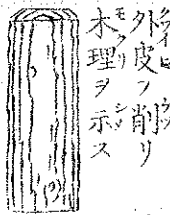 外皮ヲ削リ
木理ヲ示ス